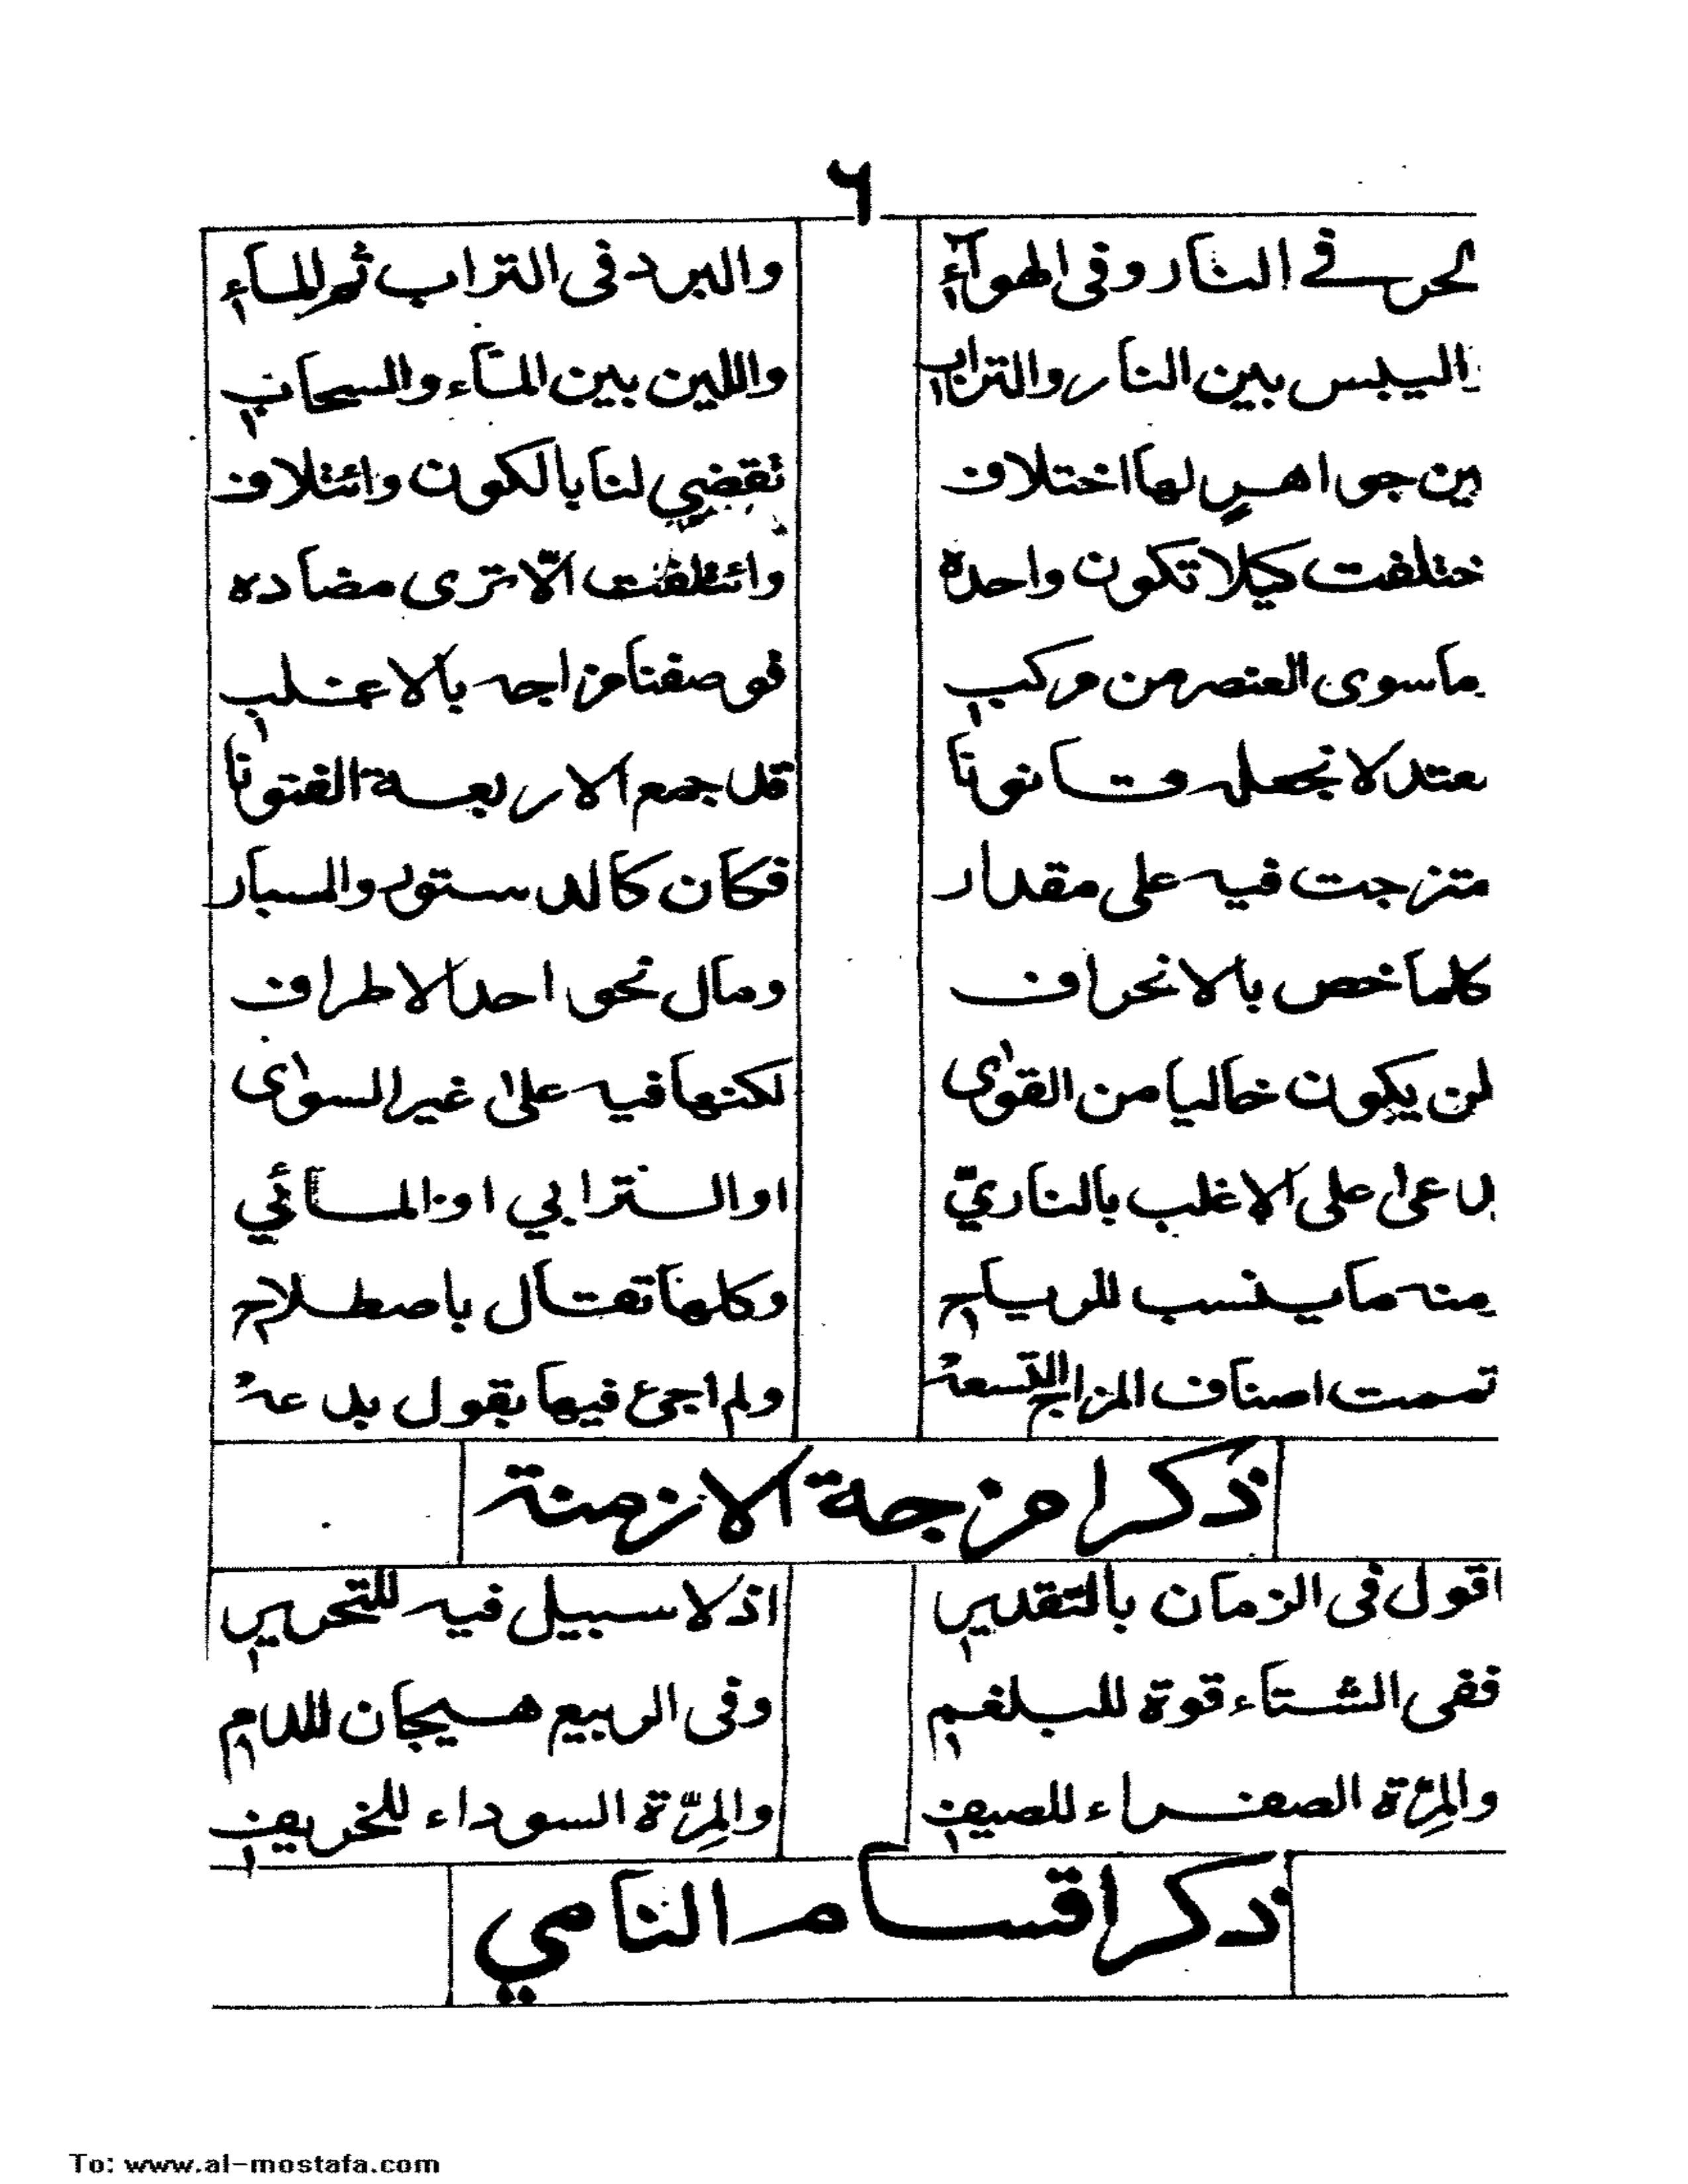 ٦
لحر في النار وفي الهوآء والبرد في التراب ثم المآء
اليبس بين النار والتراب واللين بين المآء والسحاب
بين جواهرٍ لها اختلاف تقضي لنا بالكون وائتلاف
ختلفت كيلا تكون واحده وائتلفت الّا ترى مضاده
ما سوى العنصر من مركب فوصفنا مزاجه بالاغلب
معتدلا نجعله قانونا قد جمع الاربعة الفنونا
متزجت فيه على مقدار فكان كالدستور والمسبار
كلما خص بالانحراف ومال نحو احد الاطراف
لن يكون خاليا من القوى لكنها فيه على غير السوى
على الاغلب بالناريّ او الترابي او المائي
منه ما ينسب للرياح وكلها تقال باصطلاح
تممت اصناف المزاج التسعه ولم اجئ فيها بقول بدعه
ذكر امزجة الازمنة
اقول في الزمان بالتقدير اذ لا سبيل فيه للتحرير
ففي الشتاء قوة للبلغم وفي الربيع هيجان للدم
والمِرّة الصفراء للصيف والمِرّة السوداء للخريف
ذكر اقسام النامي
To: www.al-mostafa.com